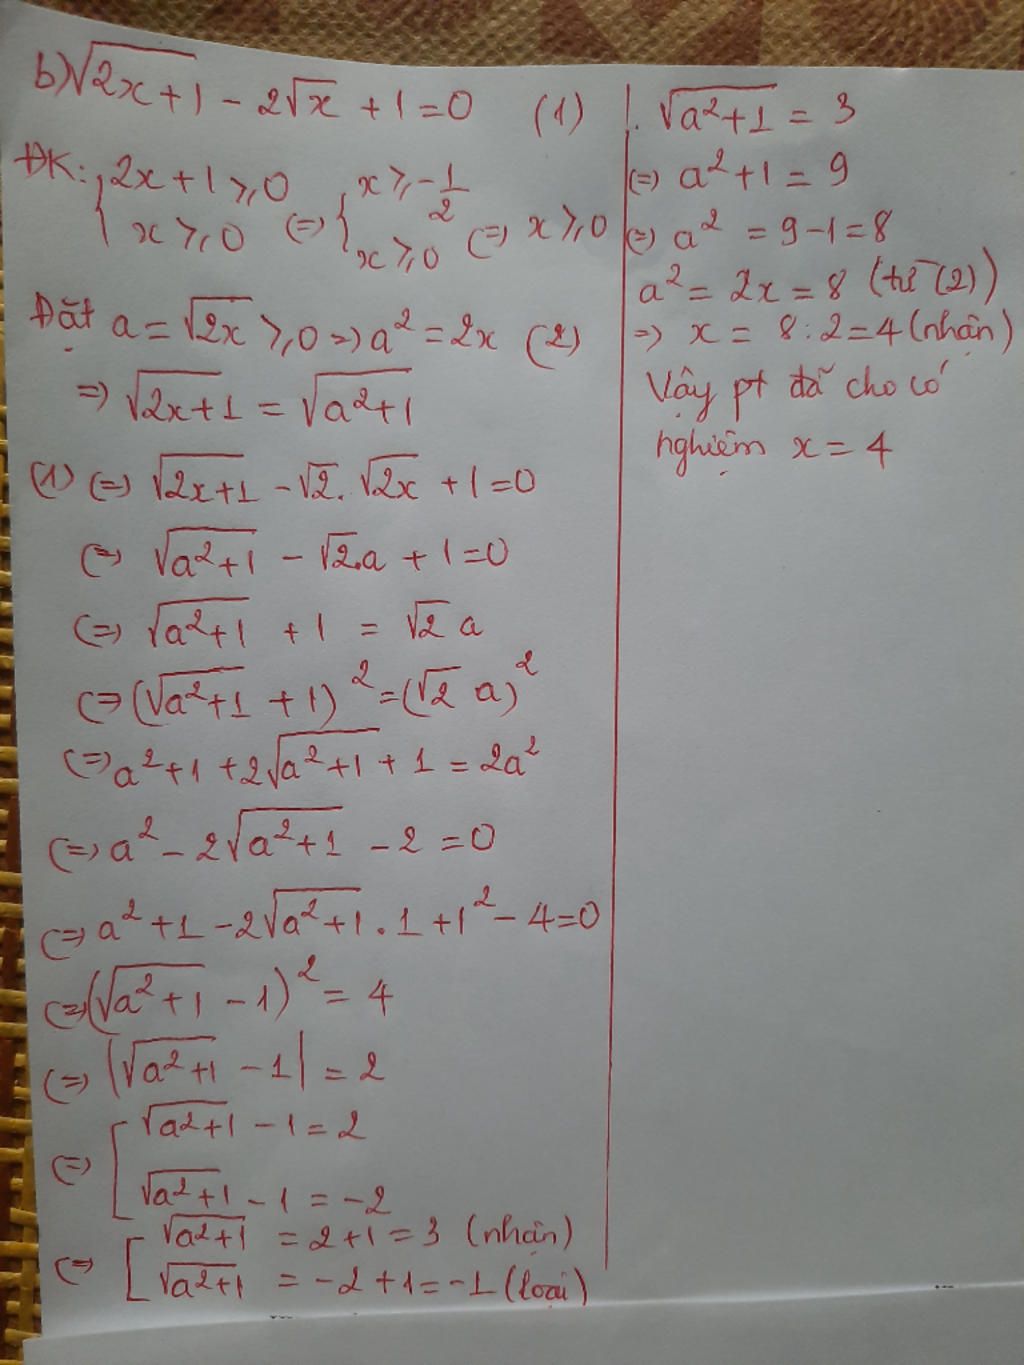 b) √(2x+1) - 2√x + 1 = 0 (1)
ĐK: { 2x+1 ≥ 0 ; x ≥ 0 (=) { x ≥ -1/2 ; x ≥ 0 (=) x ≥ 0
Đặt a = √(2x) ≥ 0 => a² = 2x (2)
=> √(2x+1) = √(a²+1)
(1) (=) √(2x+1) - √2 . √(2x) + 1 = 0
(=) √(a²+1) - √2.a + 1 = 0
(=) √(a²+1) + 1 = √2 a
(=) (√(a²+1) + 1)² = (√2 a)²
(=) a²+1 + 2√(a²+1) + 1 = 2a²
(=) a² - 2√(a²+1) - 2 = 0
(=) a² + 1 - 2√(a²+1) . 1 + 1² - 4 = 0
(=) (√(a²+1) - 1)² = 4
(=) |√(a²+1) - 1| = 2
(=) [ √(a²+1) - 1 = 2
√(a²+1) - 1 = -2
(=) [ √(a²+1) = 2+1 = 3 (nhận)
√(a²+1) = -2+1 = -1 (loại)
!. √(a²+1) = 3
(=) a²+1 = 9
(=) a² = 9-1 = 8
a² = 2x = 8 (từ (2))
=> x = 8:2 = 4 (nhận)
Vậy pt đã cho có
nghiệm x = 4